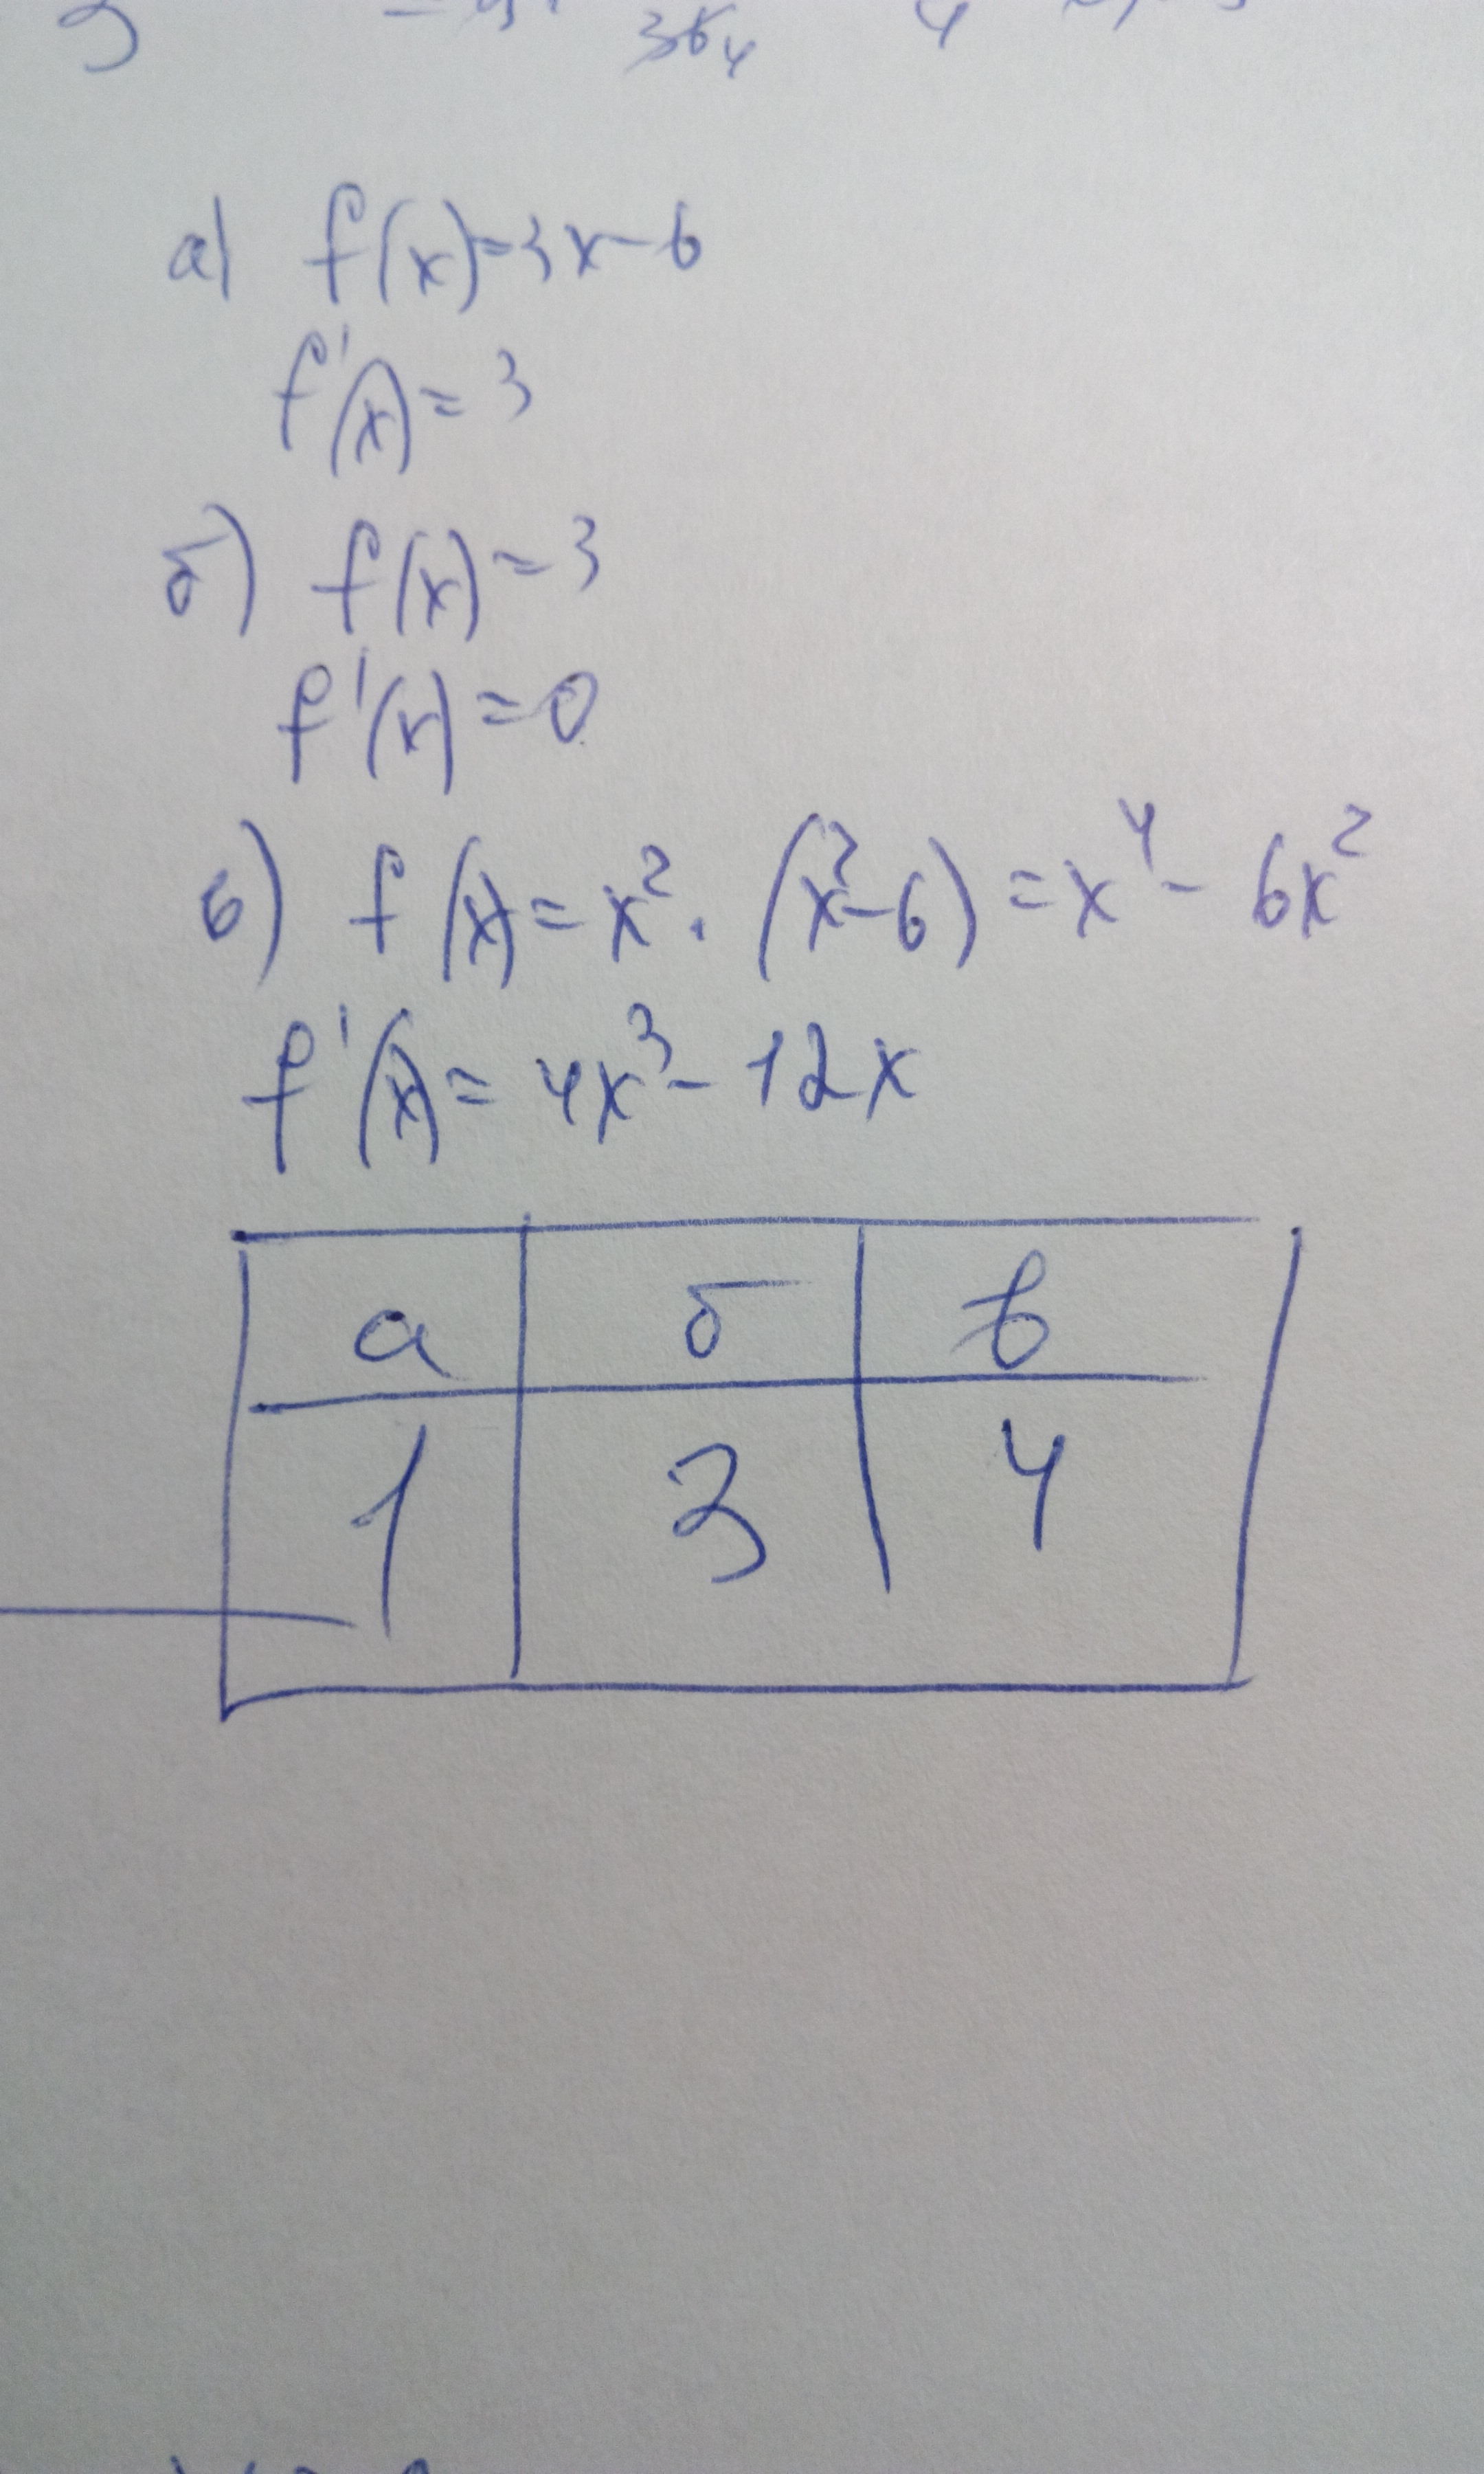 а) f(x)=3x-6
f'(x)=3
б) f(x)=3
f'(x)=0
в) f(x)=x²·(x²-6)=x⁴-6x²
f'(x)=4x³-12x
а б в
1 3 4